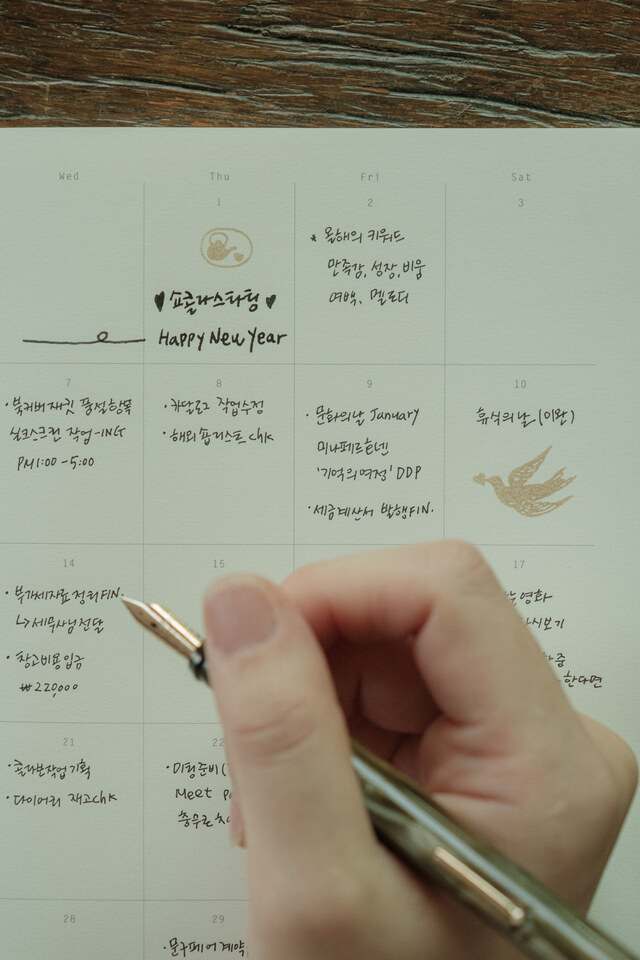 Wed Thu Fri Sat
1 2 3
* 올해의 키워드
만족감, 성장, 비움
여백, 멜로디
♥ 쇼콜라스타팅 ♥
Happy New Year
7 8 9 10
· 북커버재킷 풍경항목
실크스크린 작업-ING
PM 1:00 - 5:00
· 카달로그 작업수정
· 해외 숍리스트 chk
· 문화의날 January
미나페르호넨
'기억의 여정' DDP
· 세금계산서 발행FIN.
휴식의 날 (이완)
14 15 17
· 부가세자료정리FIN.
↳세무사님전달
· 창고비용입금
₩220,000
영화
다시보기
한다면
21 22
· 콜라보작업 기획
· 다이어리 재고chk
· 미팅준비 (
Meet
충무로
28 29
· 문구페어 계약